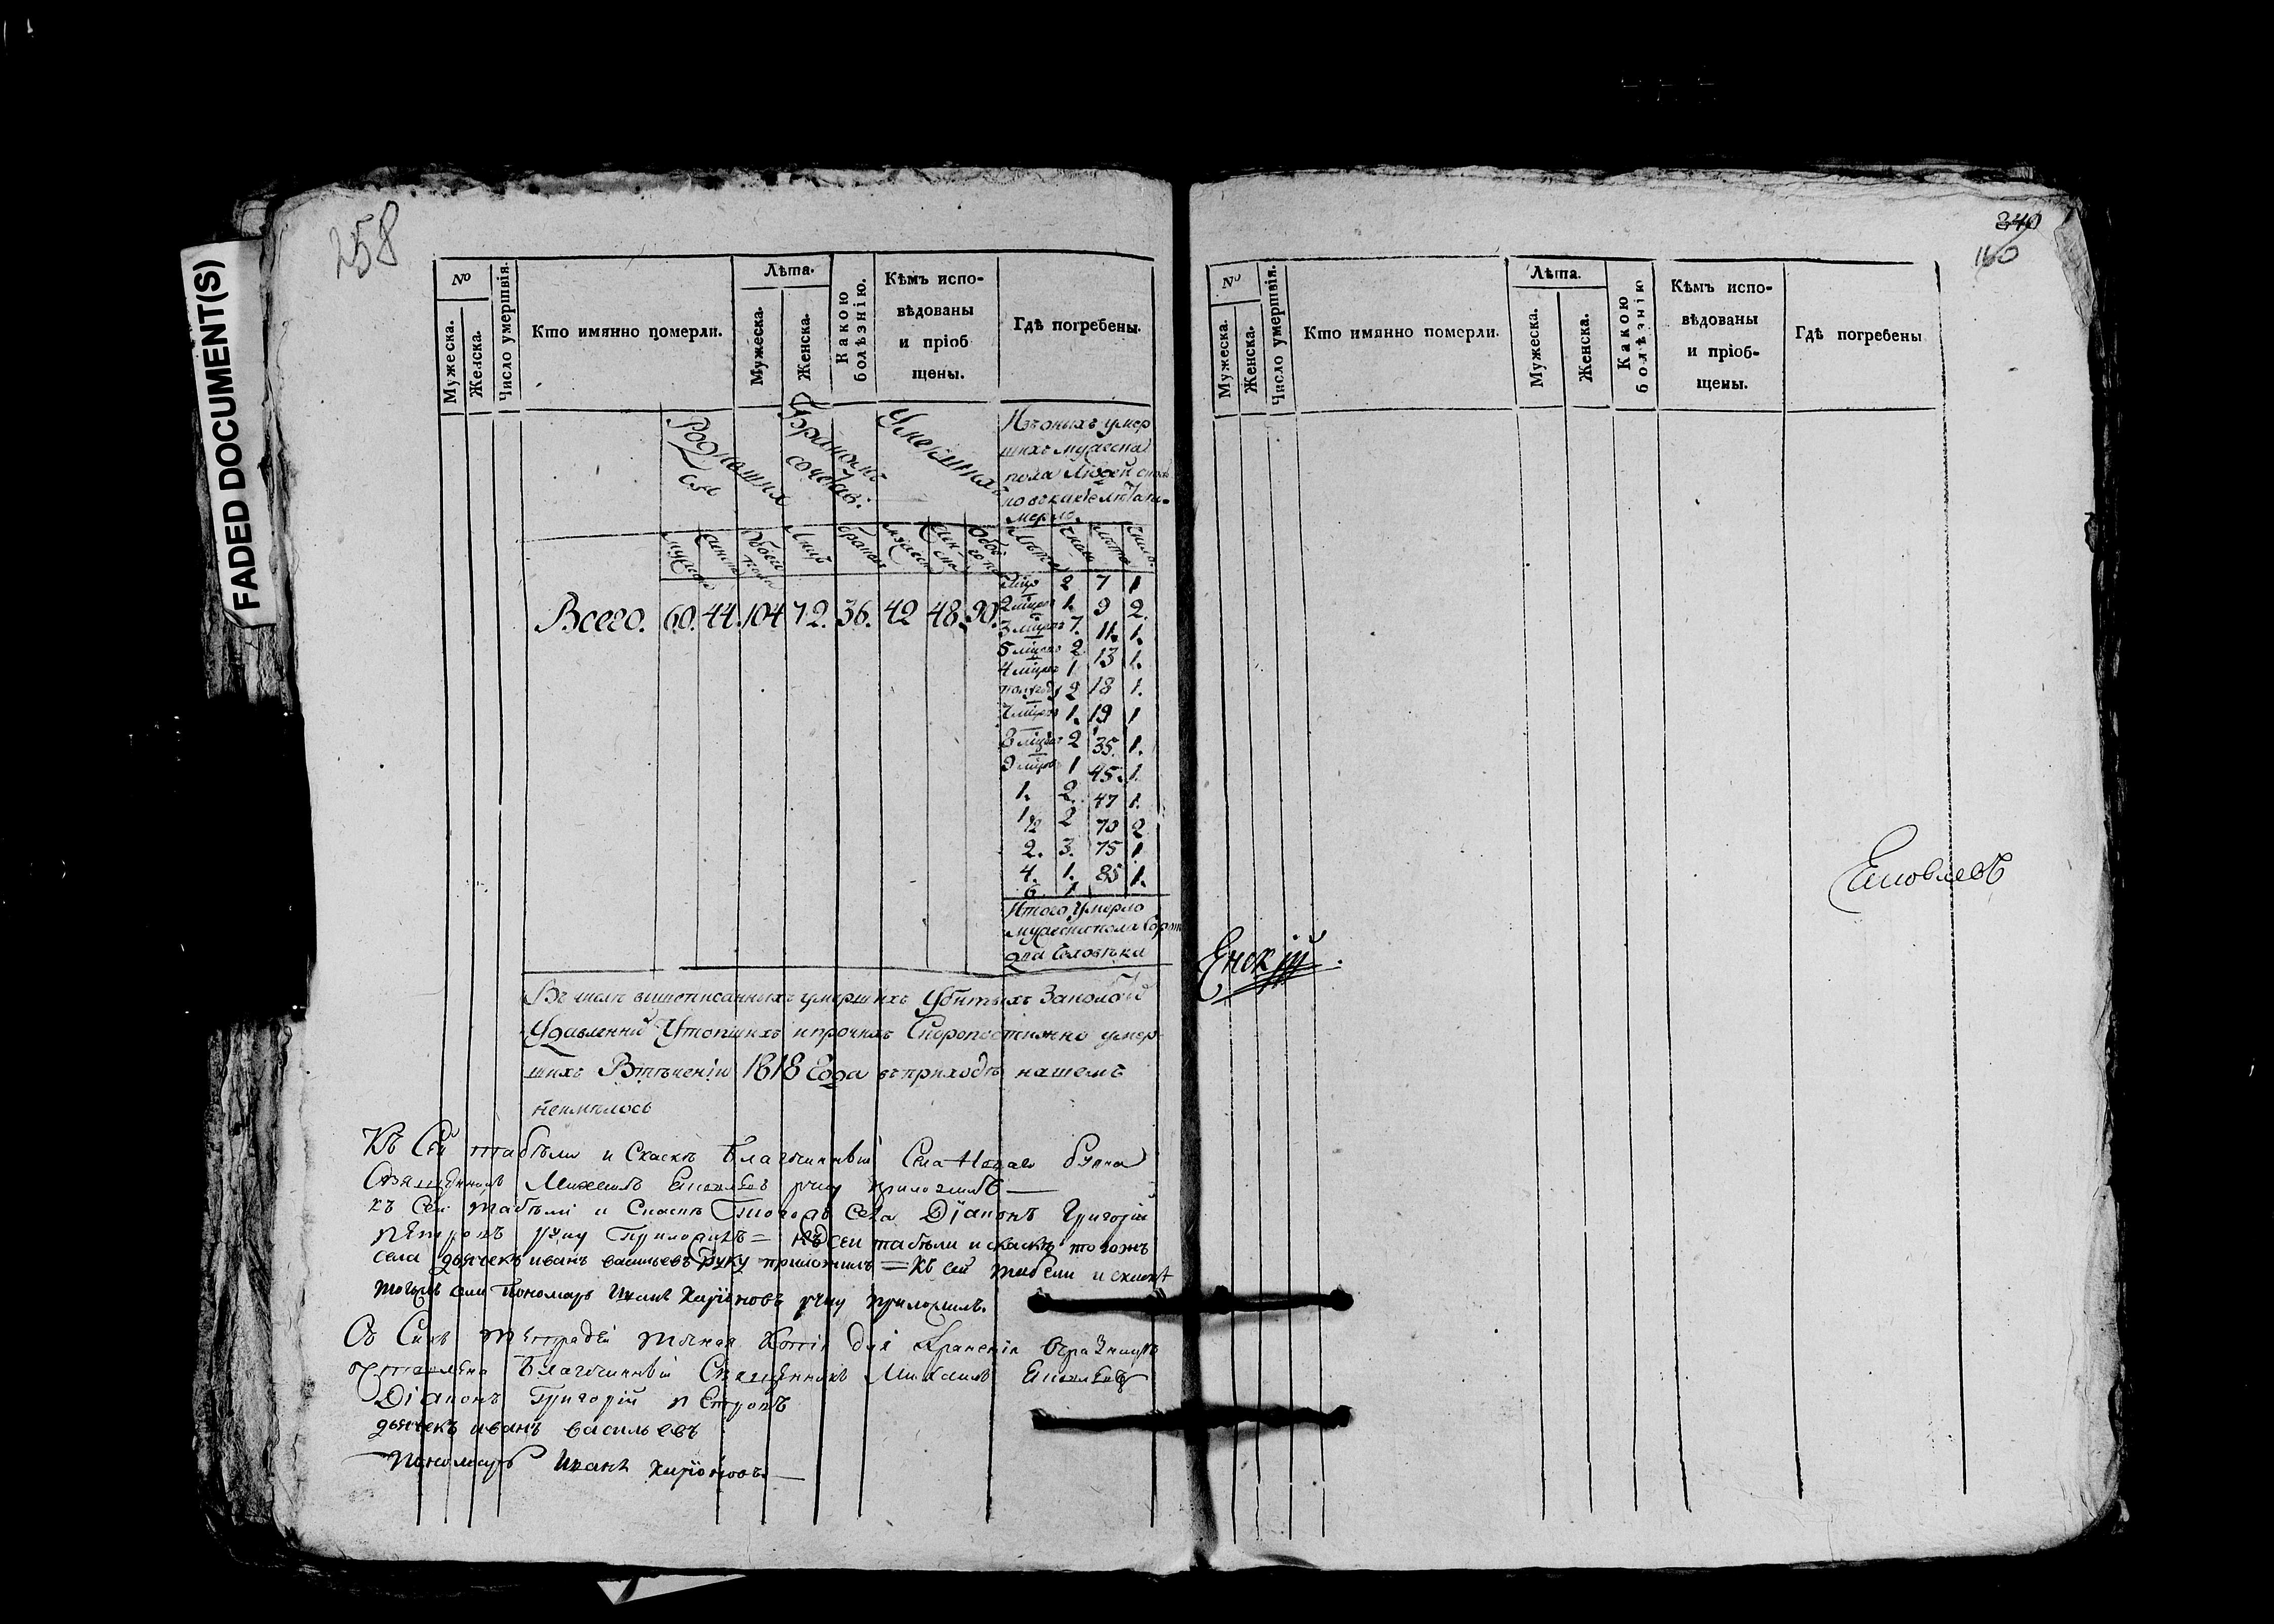 FADED DOCUMENT(S)
258
№
Мужеска.
Женска.
Число умертвія.
Кто имянно померли.
Лѣта.
Мужеска.
Женска.
Какою болѣзнію.
Кѣмъ испо-
вѣдованы
и пріоб
щены.
Гдѣ погребены.
Родивших
ся
Бракомъ
сочетав:
Умершихъ
Изъ оныхъ умер
шихъ мужеска
пола людей
мерло.
Всего. 60. 44. 104 72. 36. 42 48. 90.
2 7 1
1. 9 2.
7. 11. 1.
2 13 1.
1
полгода 2 18 1.
1. 19 1
2 35. 1.
1 45. 1.
1. 2. 47 1.
1/12 2 70 2
2. 3. 75 1
4. 1. 85 1.
6 1
Итого умерло
мужеска пола Соро
два человѣка
Въ числѣ вышеписанныхъ умершихъ убитыхъ
Удавленни Утопшихъ и прочихъ Скоропостижно умер
шихъ Втѣченіи 1818 Года въ приходѣ нашемъ
неимѣлось
Къ Сей табѣли и Скаскѣ Благочинный Села
Священникъ Михаилъ руку приложилъ
къ Сей табѣли и Скаскѣ Тогожъ Села Діаконъ Григорій
Петровъ руку Приложилъ = Къ сей табѣли и скаскѣ тогожъ
села дьячекъ иванъ васильевъ руку приложилъ = Къ сей табели и скаскѣ
тогожъ села Пономарь Иванъ руку приложилъ.
Съ Сихъ тетрадей точная Копія для храненія
оставлена Благочинный Священникъ Михаилъ
Діаконъ Григорій Петровъ
дьячекъ иванъ васильевъ
Пономарь Иванъ
340
160
№
Мужеска.
Женска.
Число умертвія.
Кто имянно померли.
Лѣта.
Мужеска.
Женска.
Какою болѣзнію
Кѣмъ испо-
вѣдованы
и пріоб-
щены.
Гдѣ погребены